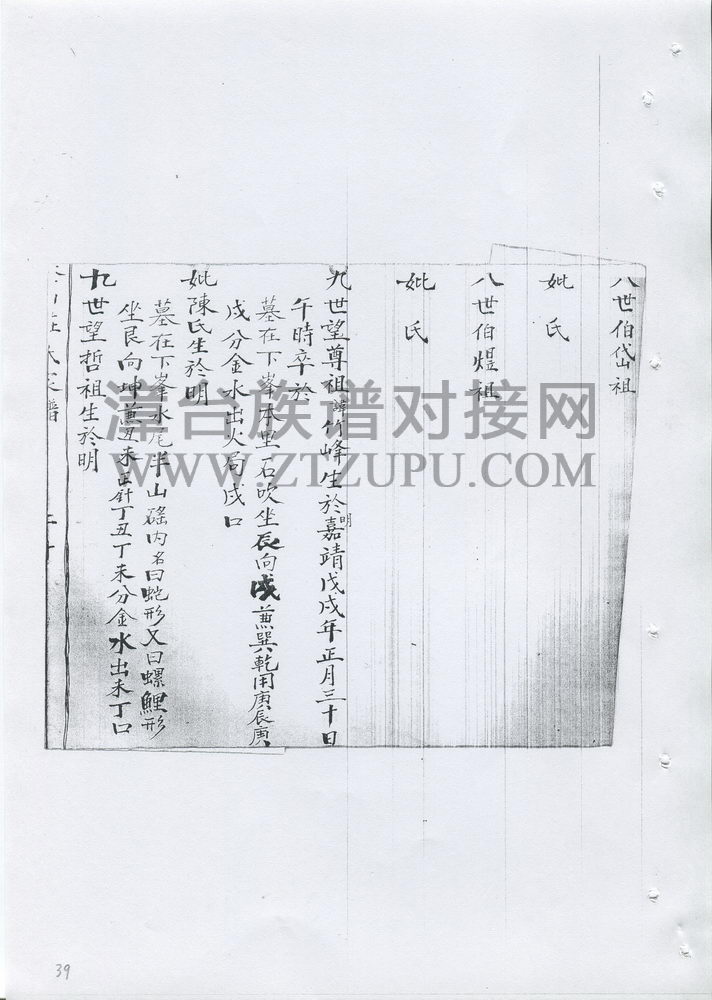 八世伯岱祖
妣氏
八世伯煜祖
妣氏
九世望尊祖諱竹峰生於明嘉靖戊戌年正月三十日
午時卒於
墓在下峯本里石吹坐辰向戌兼巽乾用庚辰庚
戌分金水出火局戌口
妣陳氏生於明
墓在下峯水尾半山磘内名曰蛇形又曰螺鯉形
坐艮向坤兼丑未正針丁丑丁未分金水出未丁口
九世望哲祖生於明
氏家譜
漳台族谱对接网
WWW.ZTZUPU.COM
39